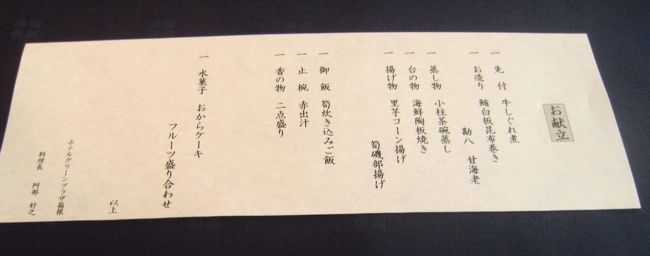 お献立
一 先付 牛しぐれ煮
一 お造り 鮪白板昆布巻き
勘八 甘海老
一 蒸し物 小柱茶碗蒸し
一 台の物 海鮮陶板焼き
一 揚げ物 里芋コーン揚げ
筍磯部揚げ
一 御飯 筍炊き込みご飯
一 止椀 赤出汁
一 香の物 二点盛り
一 水菓子 おからケーキ
フルーツ盛り合わせ
以上
ホテルグリーンプラザ箱根
料理長 阿部 好之